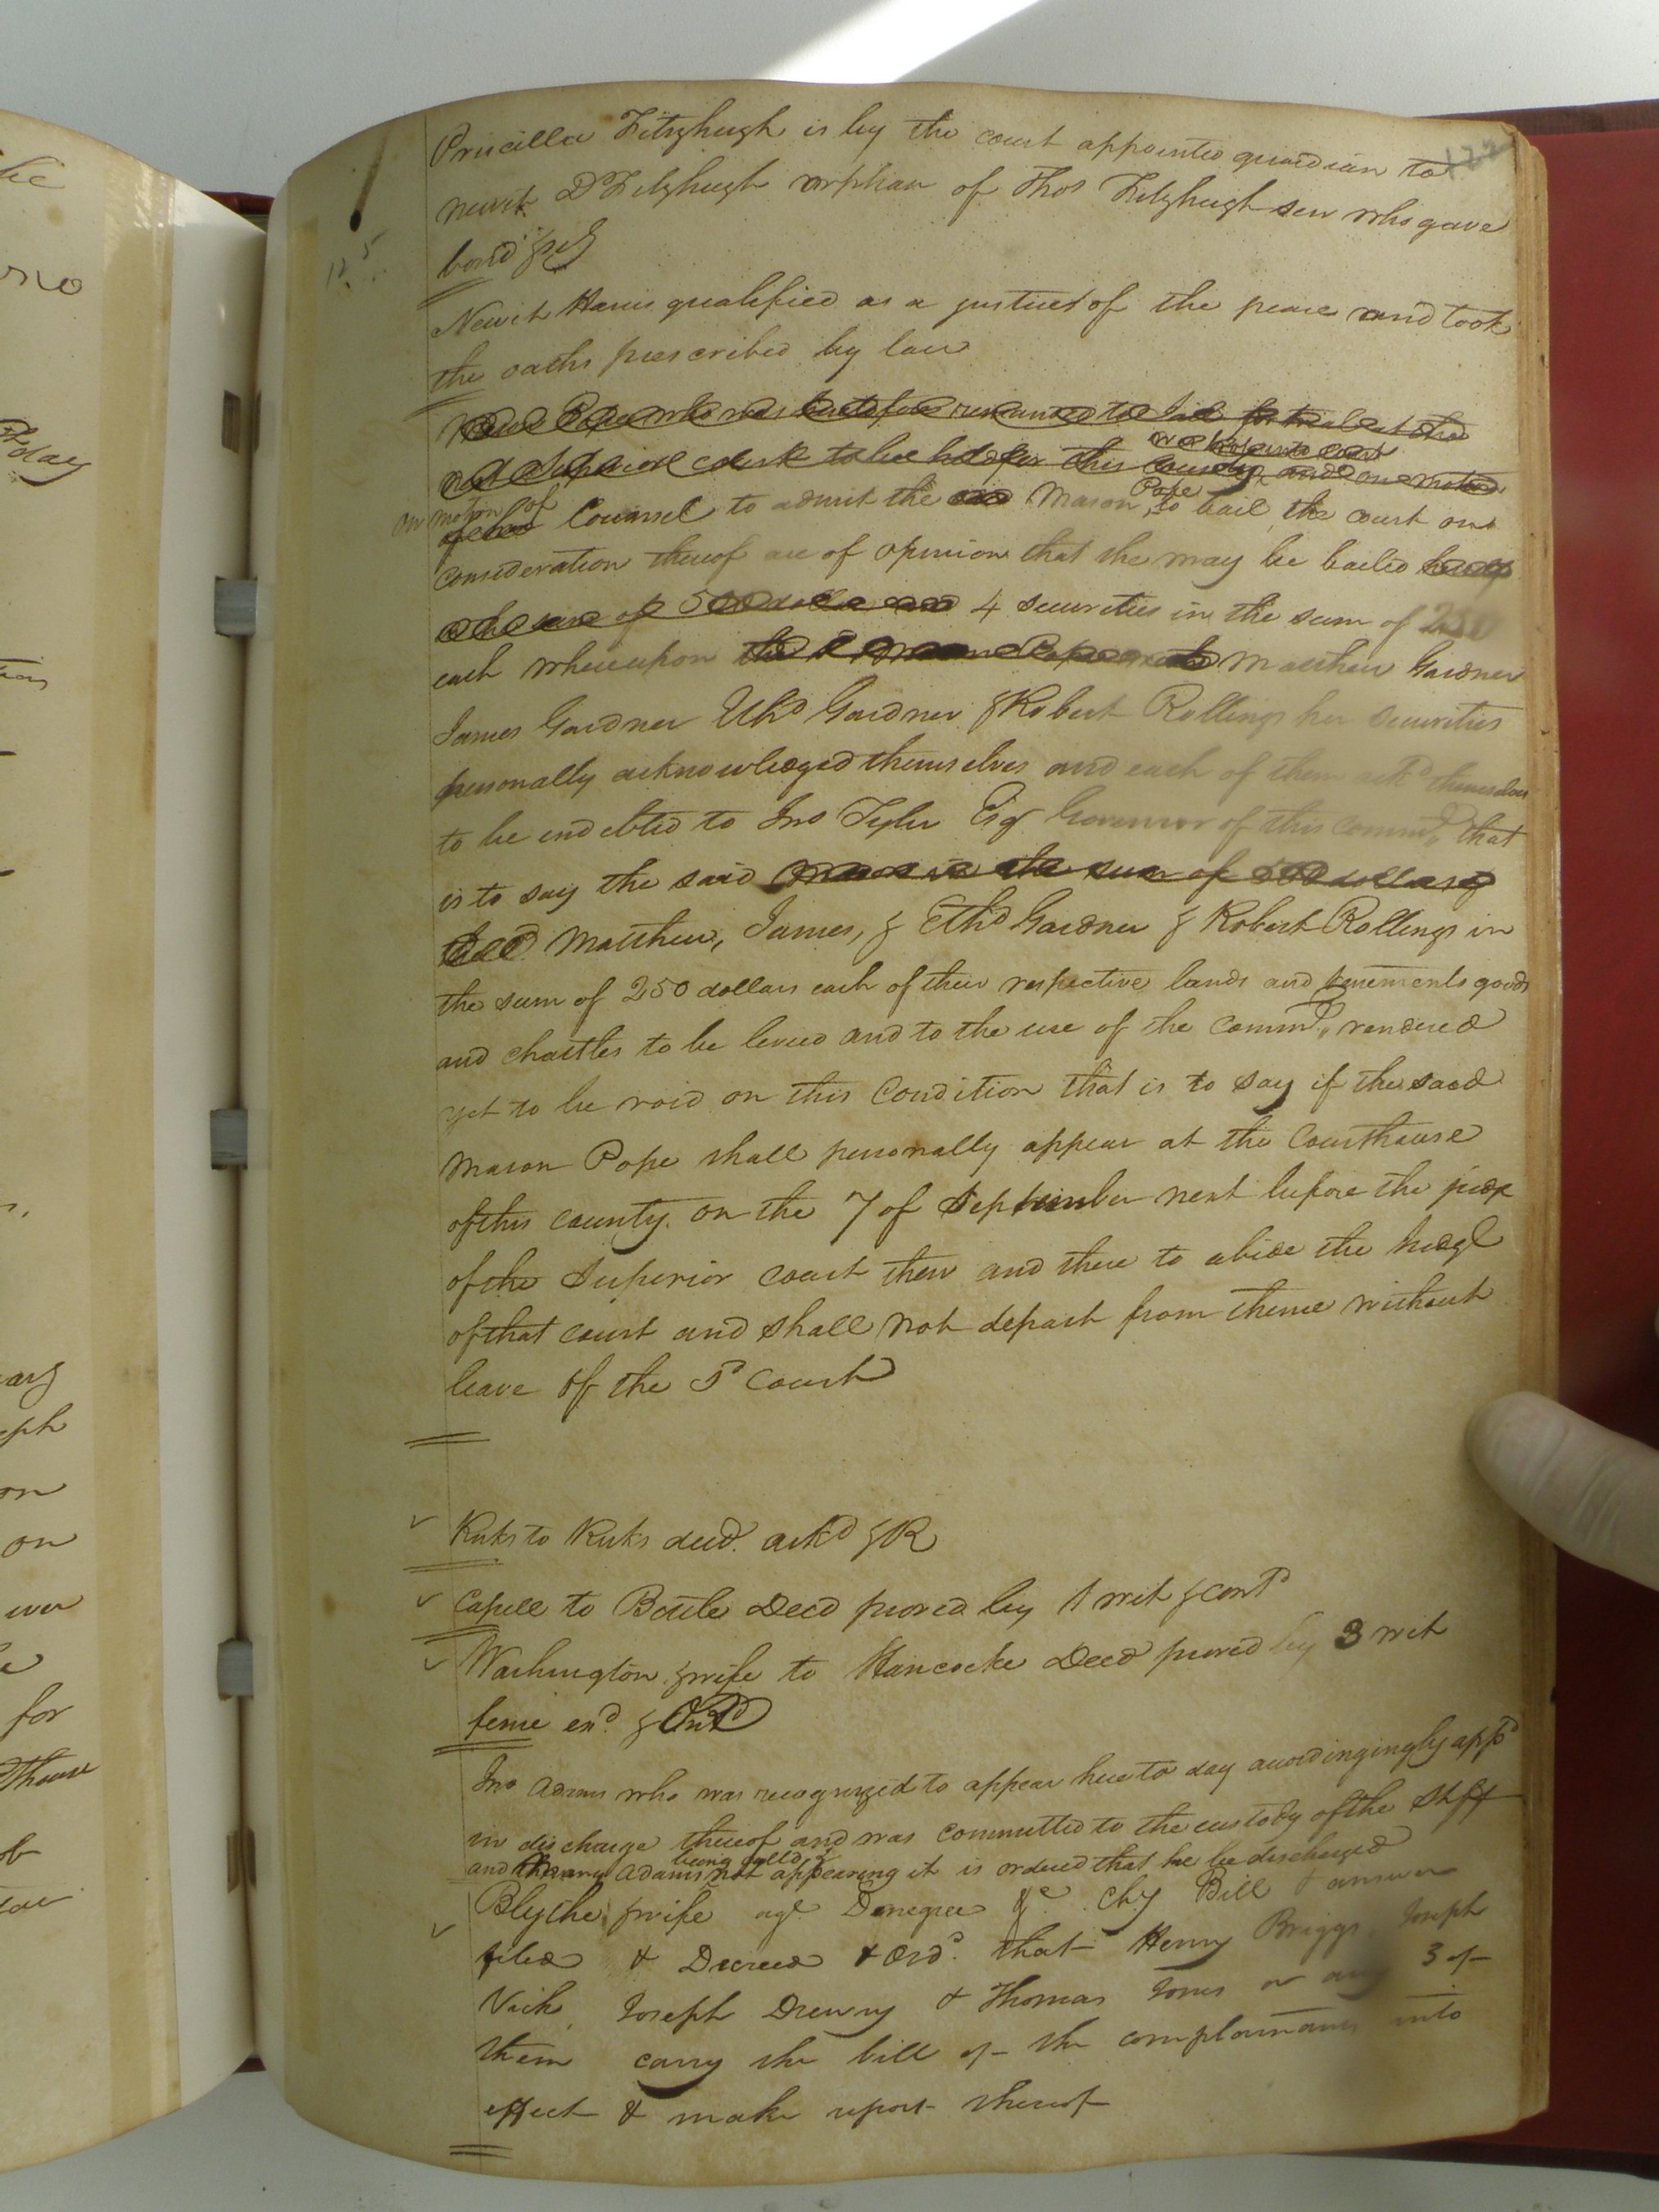 Pricilla Fitzhugh is by the court appointed guardian to
newit D Fitzhugh orphan of Thos Fitzhugh sen who gave
bond &
Newit Haris qualified as a justice of the peace and took
the oaths prescribed by law
Pope who was heretofore remanded to Jail for trial at the
next Superior court to be held for this County and on motion
was bro^t into court
on motion of
Counsel to admit the Mason Pope to bail the court on
consideration thereof are of opinion that she may be bailed
in the sum of 500 4 securities in the sum of 250
each whereupon the Matthew Gardner
James Gardner Eth^d Gardner & Robert Rollings her securities
personally acknowledged themselves and each of them ack^d themselves
to be endebted to Jno Tyler Esq Governor of this Commth that
is to say the said in the sum of 500 dollars &
Matthew, James, & Eth^d Gardner & Robert Rollings in
the sum of 250 dollars each of their respective lands and tenements goods
and chattles to be levied and to the use of the Commth rendered
yet to be void on this Condition that is to say if the said
Mason Pope shall personally appear at the Courthouse
of this county on the 7 of September next before the
of the Superior court then and there to abide the
of that court and shall not depart from thence without
leave of the s^d Court
Ricks to Ricks deed. ack^d & R
Capell to Battle Deed proved by 1 wit & cont^d
Washington & wife to Hancocke Deed proved by 3 wit
feme ex^d & Ord
Jno Adams who was recognized to appear here to day accordingingly app^d
in discharge thereof and was committed to the custody of the Shff
being called
and Adams not appearing it is ordered that he be discharged
Blythe & wife ag^t Denegree &c. Chy Bill & answer
filed & Decreed & Ord^d. that Henry Briggs Joseph
Vick, Joseph Drewry & Thomas Jones or any 3 of
them carry the bill of the complainants into
effect & make report thereof